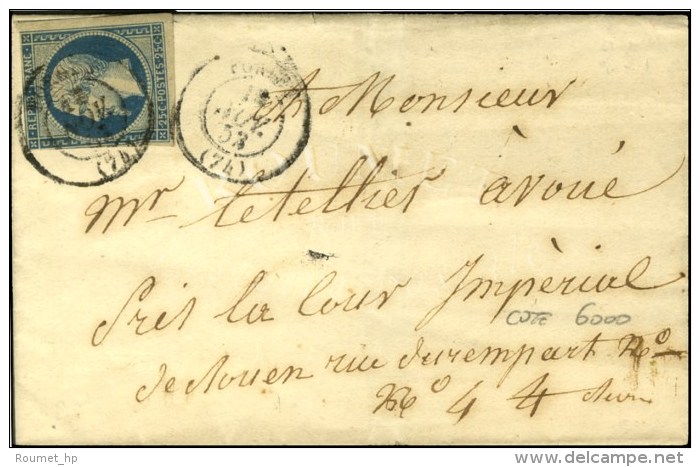 REPUB. FRANC.
25c POSTES 25c
18
NOV.
53
(74)
(74)
A Monsieur
Mr Letellier avoué
Près la Cour Impérial
COTE 6000
de Rouen rue du rempart No
No 4 4
Roumet_hp